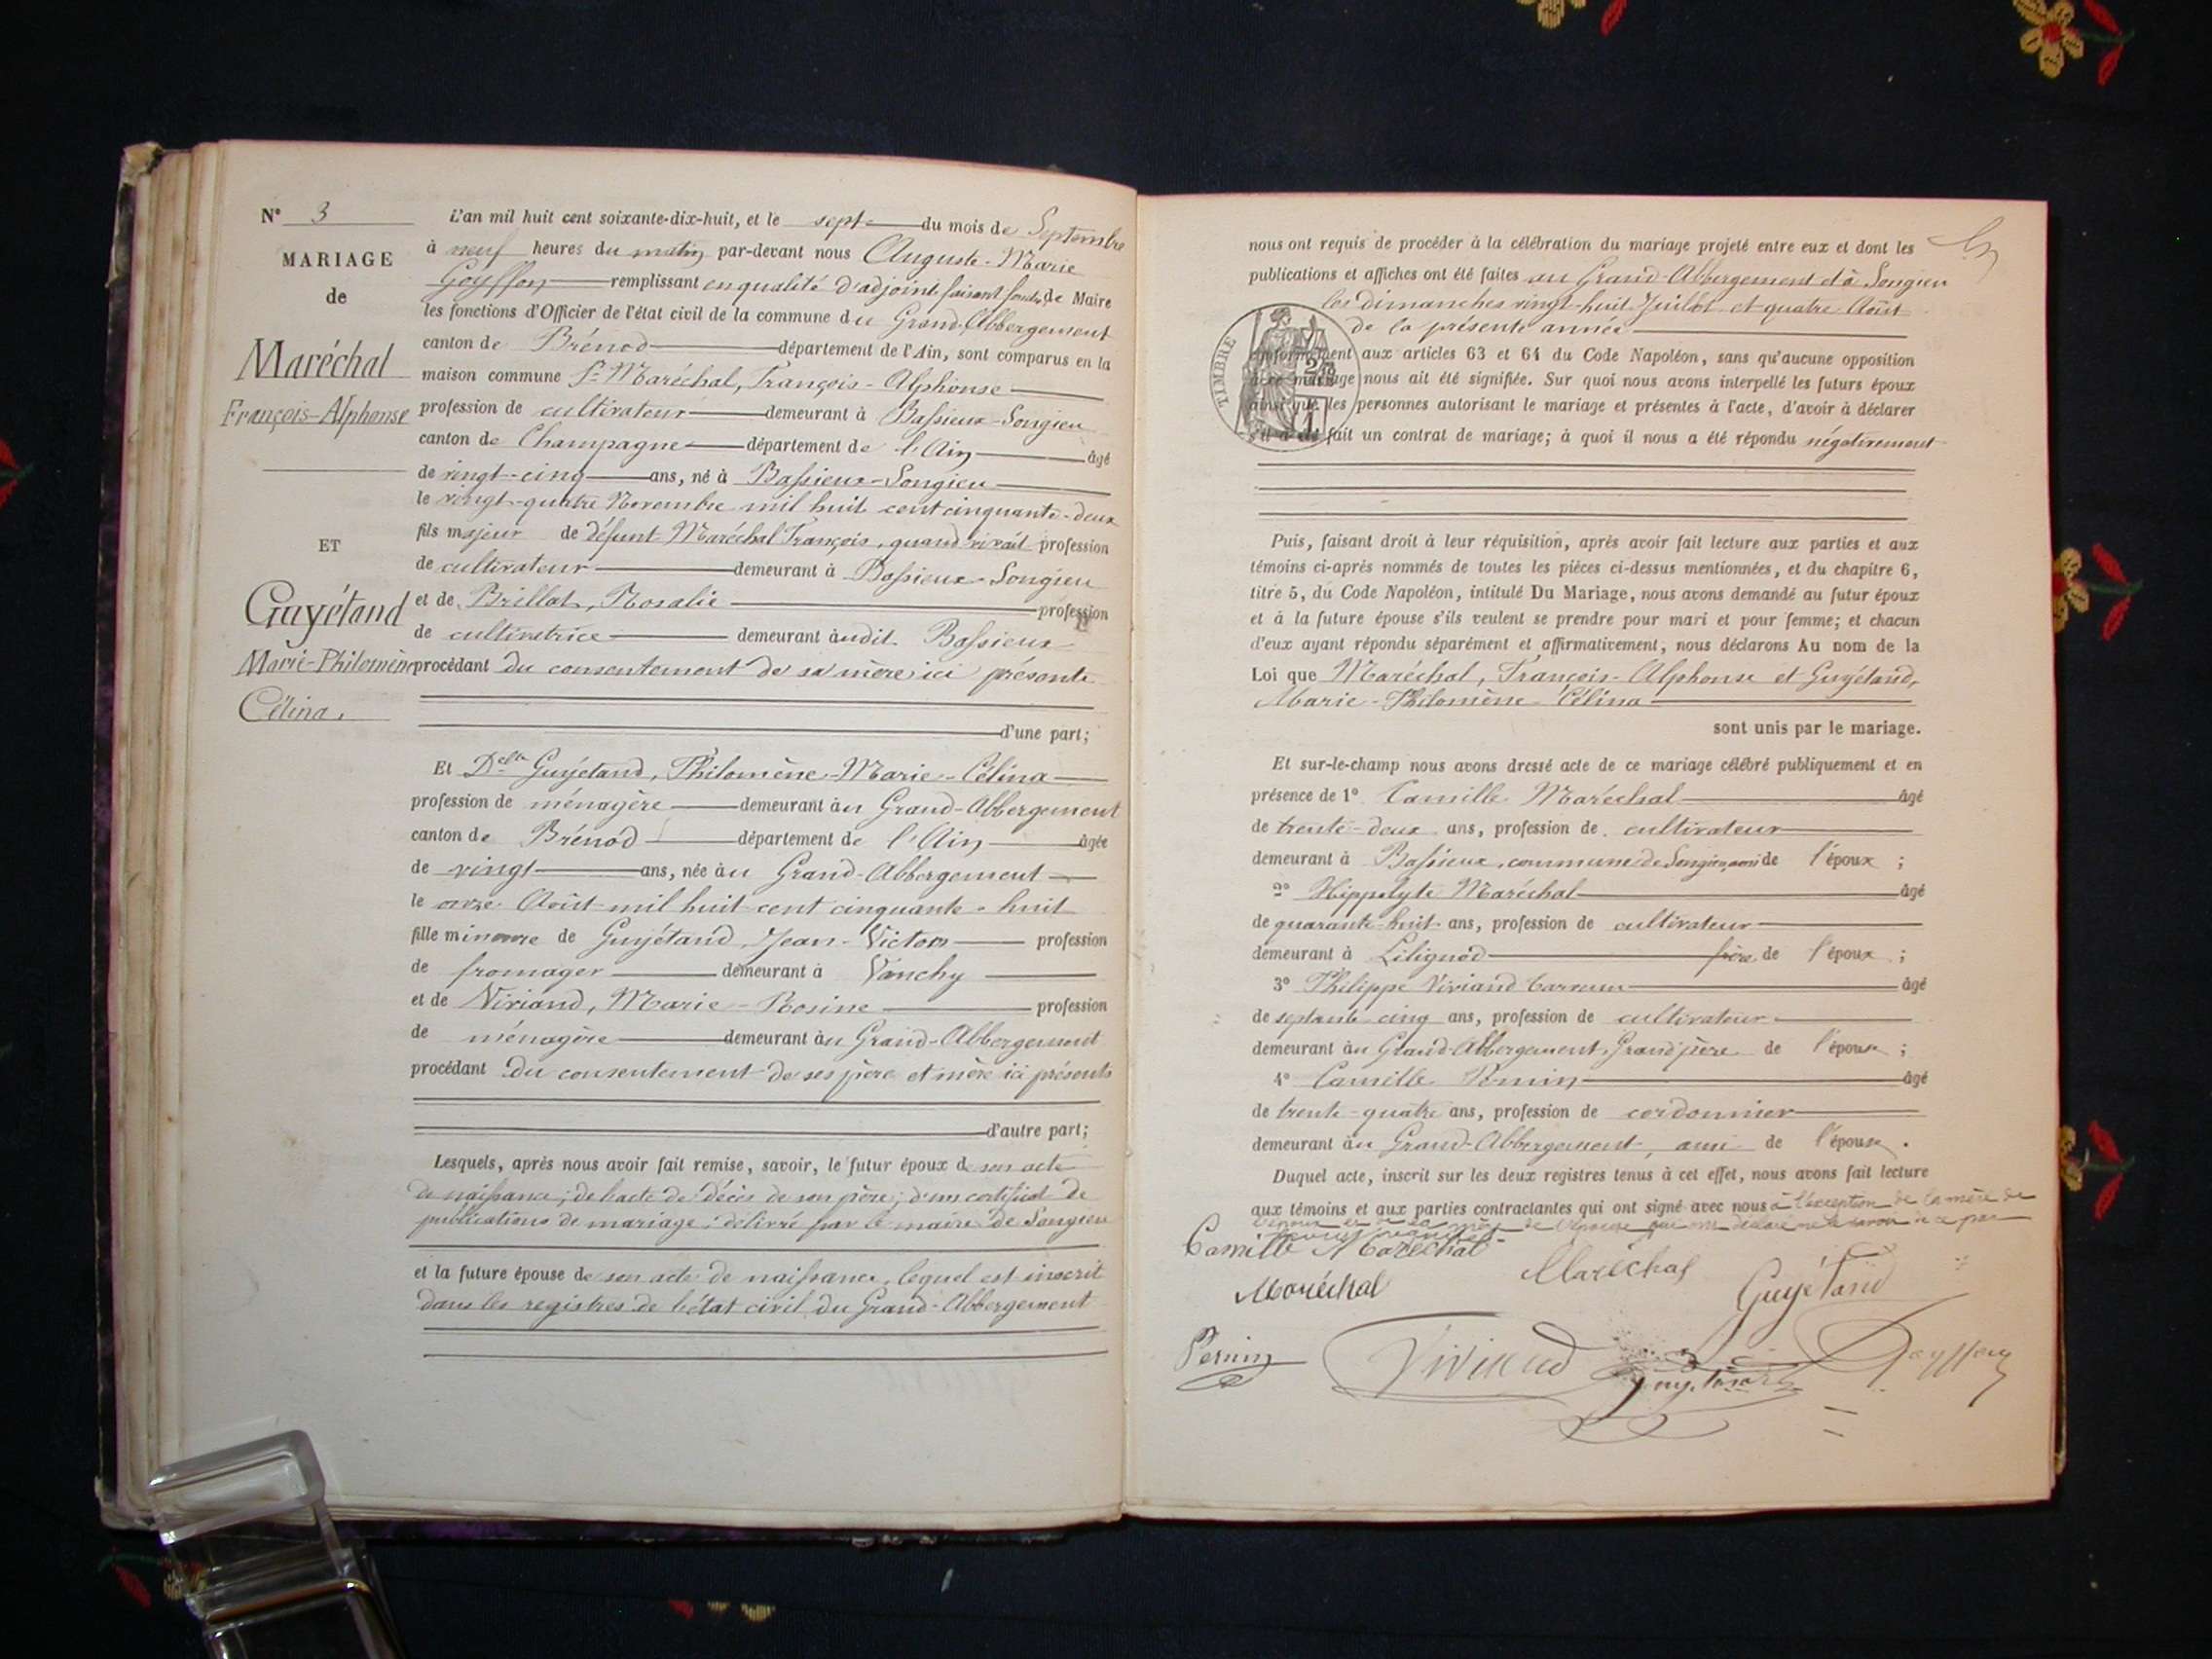 N° 3
MARIAGE
de
Maréchal
François-Alphonse
ET
Guyétand
Marie-Philomène
Célina.
L'an mil huit cent soixante-dix-huit, et le sept du mois de Septembre
à neuf heures du matin par-devant nous Auguste-Marie
Goyffon remplissant en qualité d'adjoint faisant fonct. de Maire
les fonctions d'Officier de l'état civil de la commune du Grand-Abbergement
canton de Brénod département de l'Ain, sont comparus en la
maison commune Sr Maréchal, François-Alphonse
profession de cultivateur demeurant à Bassieux-Songieu
canton de Champagne département de l'Ain âgé
de vingt-cinq ans, né à Bassieux-Songieu
le vingt-quatre Novembre mil huit cent cinquante-deux
fils majeur de défunt Maréchal François, quand vivait profession
de cultivateur demeurant à Bassieux-Songieu
et de Brillat, Rosalie profession
de cultivatrice demeurant audit Bassieux
procédant du consentement de sa mère ici présente
d'une part;
Et Delle Guyétand, Philomène-Marie-Célina
profession de ménagère demeurant au Grand-Abbergement
canton de Brénod département de l'Ain âgée
de vingt ans, née au Grand-Abbergement
le onze Août mil huit cent cinquante-huit
fille mineure de Guyétand, Jean-Victor profession
de fromager demeurant à Vanchy
et de Viviand, Marie-Rosine profession
de ménagère demeurant au Grand-Abbergement
procédant du consentement de ses père et mère ici présents
d'autre part;
Lesquels, après nous avoir fait remise, savoir, le futur époux de son acte
de naissance; de l'acte de décès de son père; d'un certificat de
publications de mariage, délivré par le maire de Songieu
et la future épouse de son acte de naissance, lequel est inscrit
dans les registres de l'état civil du Grand-Abbergement
nous ont requis de procéder à la célébration du mariage projeté entre eux et dont les
publications et affiches ont été faites au Grand-Abbergement et à Songieu
les dimanches vingt-huit Juillet et quatre Août
de la présente année
TIMBRE
conformément aux articles 63 et 64 du Code Napoléon, sans qu'aucune opposition
à ce mariage nous ait été signifiée. Sur quoi nous avons interpellé les futurs époux
ainsi que les personnes autorisant le mariage et présentes à l'acte, d'avoir à déclarer
s'il a été fait un contrat de mariage; à quoi il nous a été répondu négativement
Puis, faisant droit à leur réquisition, après avoir fait lecture aux parties et aux
témoins ci-après nommés de toutes les pièces ci-dessus mentionnées, et du chapitre 6,
titre 5, du Code Napoléon, intitulé Du Mariage, nous avons demandé au futur époux
et à la future épouse s'ils veulent se prendre pour mari et pour femme; et chacun
d'eux ayant répondu séparément et affirmativement, nous déclarons Au nom de la
Loi que Maréchal, François-Alphonse et Guyétand,
Marie-Philomène-Célina
sont unis par le mariage.
Et sur-le-champ nous avons dressé acte de ce mariage célébré publiquement et en
présence de 1° Camille Maréchal âgé
de trente-deux ans, profession de cultivateur
demeurant à Bassieux, commune de Songieu, ami de l'époux;
2° Hippolyte Maréchal âgé
de quarante-huit ans, profession de cultivateur
demeurant à Lilignod frère de l'époux;
3° Philippe Viviand âgé
de septante-cinq ans, profession de cultivateur
demeurant au Grand-Abbergement, Grand père de l'épouse;
4° Camille Pernin âgé
de trente-quatre ans, profession de cordonnier
demeurant au Grand-Abbergement, ami de l'épouse.
Duquel acte, inscrit sur les deux registres tenus à cet effet, nous avons fait lecture
aux témoins et aux parties contractantes qui ont signé avec nous à l'exception de la mère de
l'époux et de la mère de l'épouse qui ont déclaré ne le savoir
Camille Maréchal
Maréchal
Maréchal
Guyétand
Pernin
Viviand
Guyétand
Goyffon